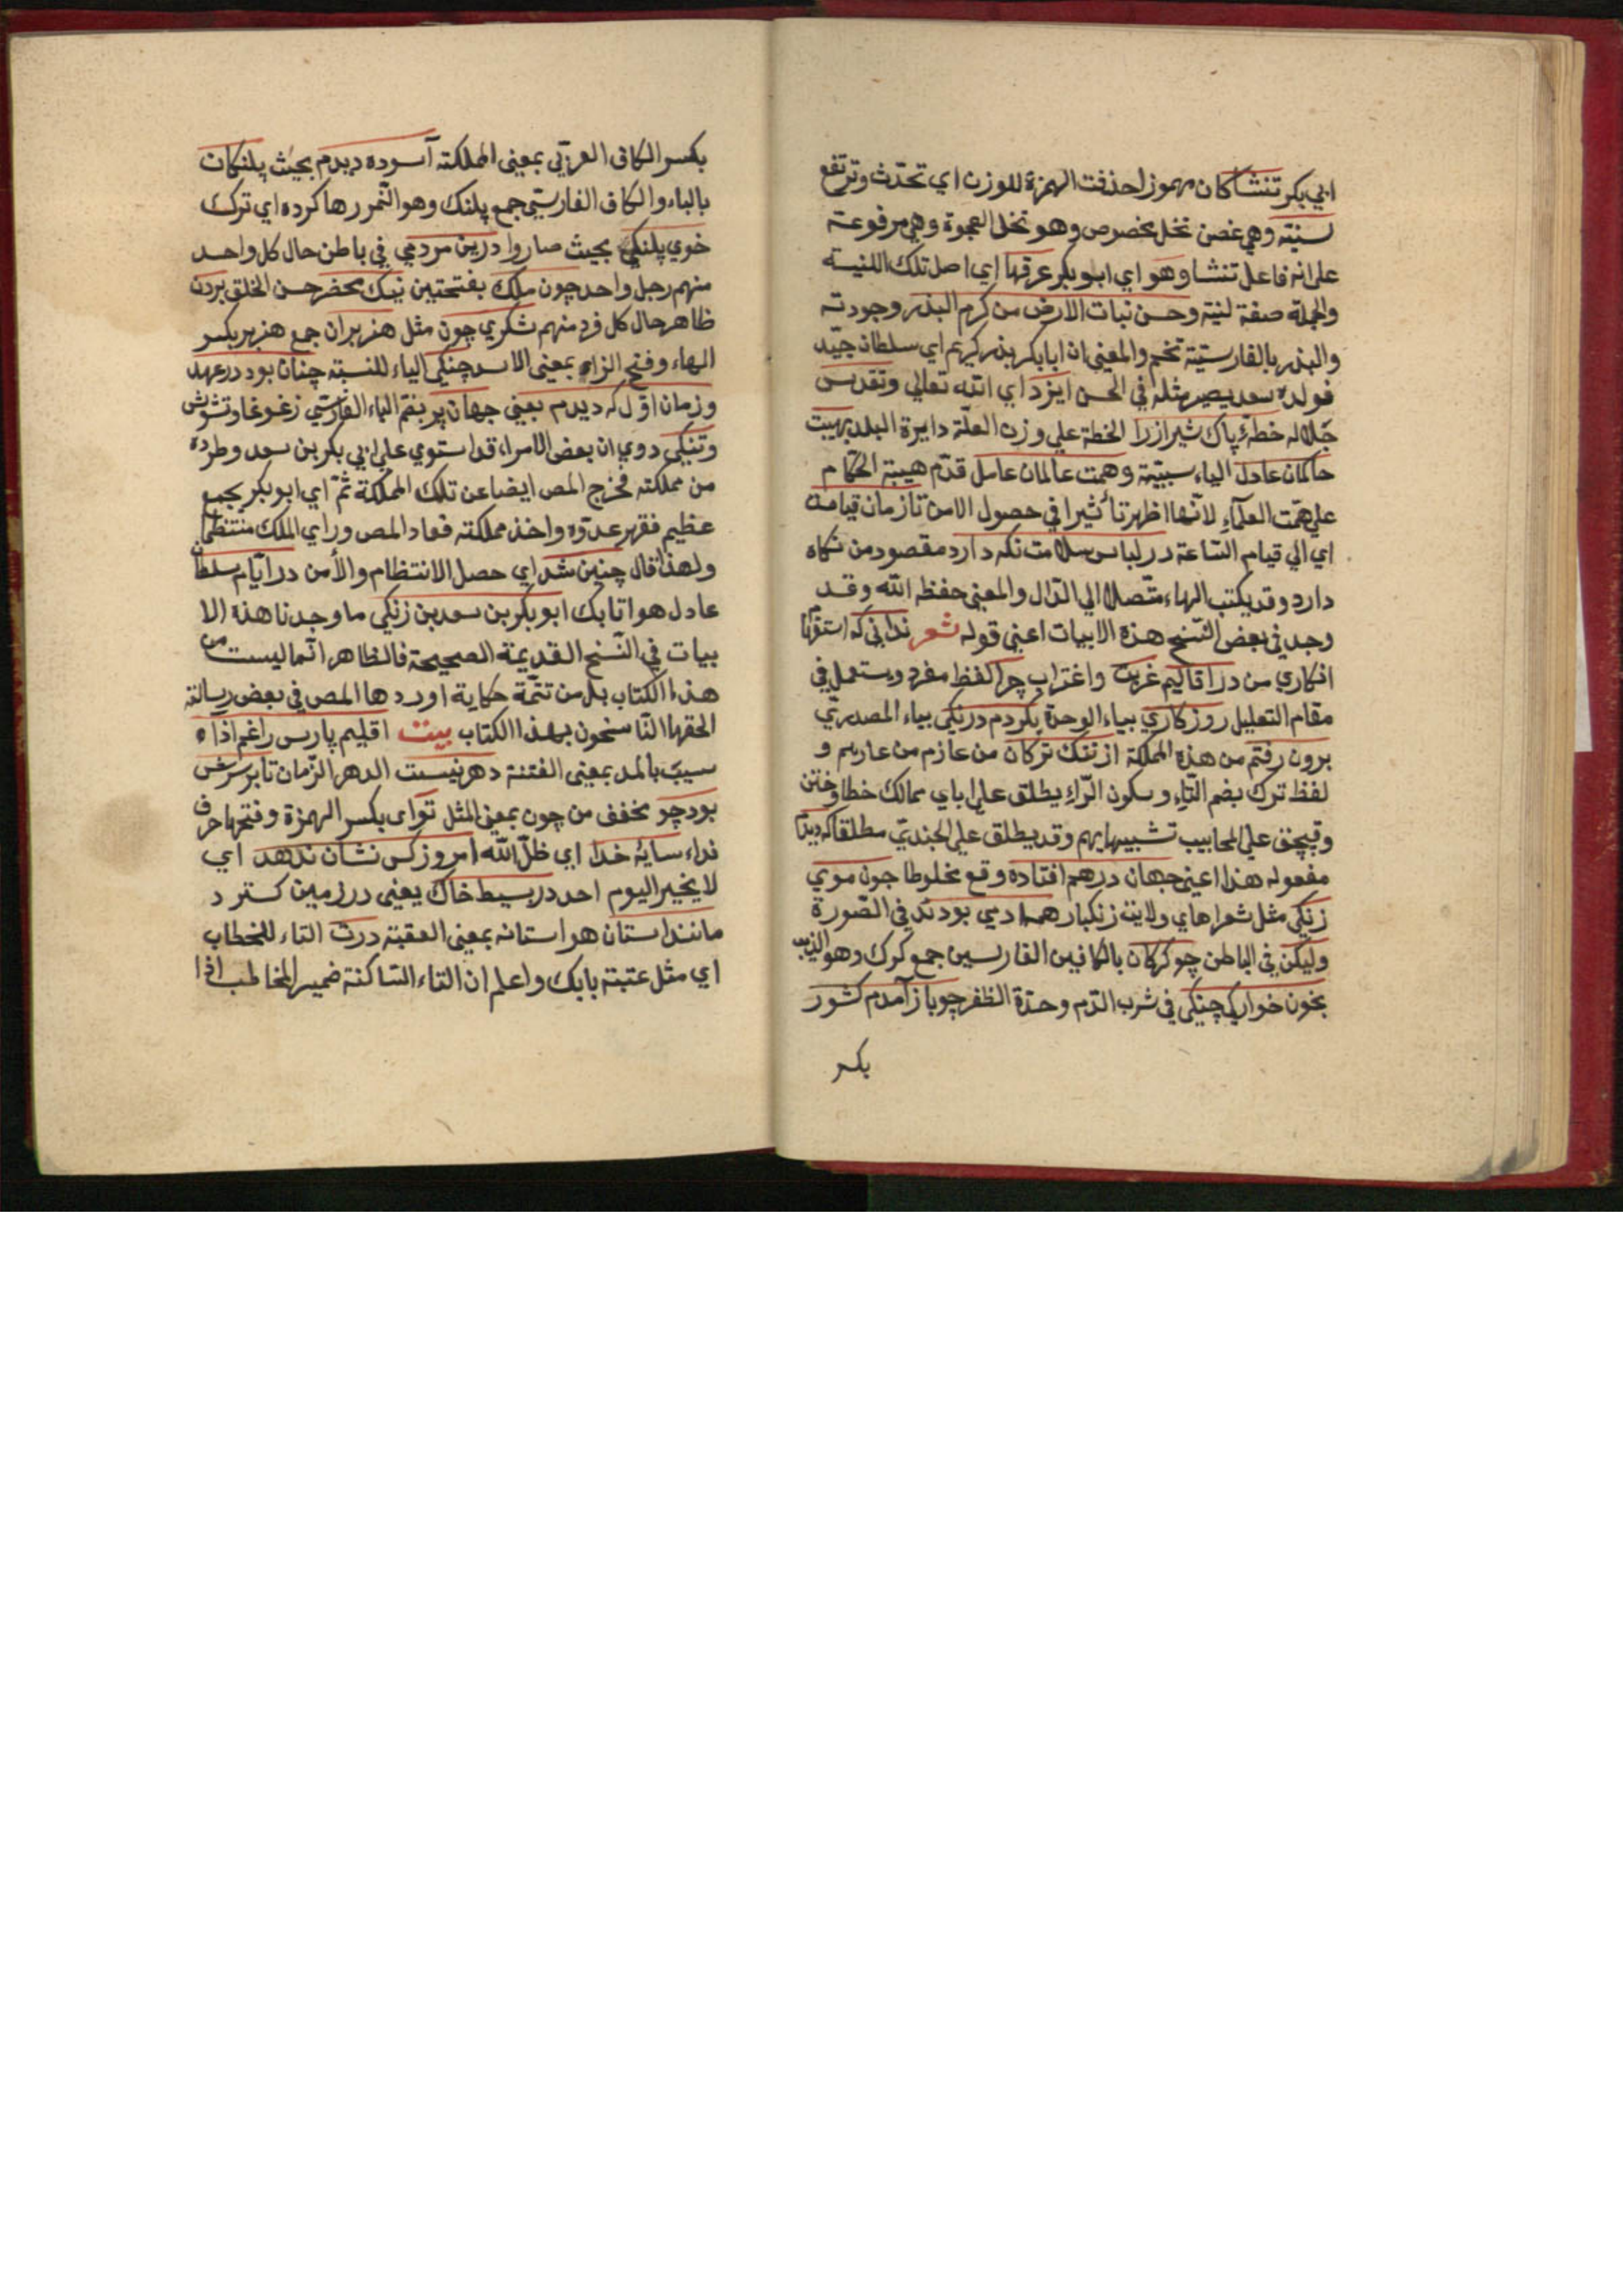 ابي بكر تنشا كان مهموزا حذفت الهمزة للوزن اي تحدث وترتفع
لسنته وهي غصن نخل مخصوص وهو نخل العجوة وهي مرفوعة
علي انه فاعل تنشا وهو اي ابو بكر عرقها اي اصل تلك اللنيسة
والجملة صفة لنية وحسن نبات الارض من كرم البذر وجودته
والبذر بالفارسيّة تخم والمعني ان ابابكر بذر كريم اي سلطان جيّد
فولده سعد يصير مثله في الحسن ايزد اي الله تعالي وتقدس
جلاله خطهٔ پاك شيراز را الخطة علي وزن العلّة دايرة البلد بهيبت
حاكمان عادل الياء سببيّة وهمت عالمان عامل قدّم هيبة الحكام
علي همّت العلمآء لانّها اظهر تأثيرا في حصول الامن تا زمان قيامت
اي الي قيام السّاعة در لباس سلامت نكه دارد مقصود من نكاه
دارد وقد يكتب الهاء متّصلا الي الدّال والمعني حفظه الله وقد
وجد في بعض النّسخ هذه الابيات اعني قوله شعر نداني كه استفهام
انكاري من در اقاليم غربت واغتراب چرا لفظ مفرد ويستعمل في
مقام التعليل روزكاري بياء الوحدة بكردم درنكي بياء المصدريّ
برون رفتم من هذه المملكة از تنك تركان من عازم من عاربهم و
لفظ ترك بضم التاء وسكون الرّاء يطلق علي اباي ممالك خطا وختن
وقپچق علي المحابيب تشبيها بهم وقد يطلق علي الجنديّ مطلقا كه ديدم
مفعوله هذا اعني جهان درهم افتاده وقع مخلوطا چون موي
زنكي مثل شعرا هاي ولايت زنكبار همه ادمي بودند في الصّورة
وليكن في الباطن چو كركان بالكافين الفارسين جمع كرك وهو الذيب
بخون خواركي چنكي في شرب الدّم وحدّة الظفر چو باز آمدم كشور
بكسر
بكسر الكاف العربّي بمعني المملكة آسوده ديدم بحيث پلنكان
بالباء والكاف الفارسيّ جمع پلنك وهو النّمر رها كرده اي ترك
خوي پلنكي بحيث صاروا درين مردمي في باطن حال كل واحد
منهم رجل واحد چون ملك بفتحتين نيك محضر حسن الخلق برون
ظاهر حال كل فرد منهم لشكري چون مثل هزبران جمع هزبر بكسر
الهاء وفتح الزاء بمعني الاسد چنكي الياء للنسبة چنان بود در عهد
وزمان اوّل كه ديدم يعني جهان پر بضم الباء الفارسّي ز غوغا وتشويش
وتنكي روي ان بعض الامراء قد استوي علي ابي بكر بن سعد وطرده
من مملكته فخرج المص ايضا عن تلك المملكة ثمّ اي ابو بكر بجمع
عظيم فقهر عدوّه واخذ مملكته فعاد المص وراي الملك منتظما
ولهذا قال چنين شد اي حصل الانتظام والأمن در ايّام سلطان
عادل هو اتابك ابو بكر بن سعد بن زنكي ما وجدنا هذه الا
بيات في النّسخ القديمة الصحيحة فالظاهر انّما ليست من
هذا الكتاب بل من تتمّة حكاية اوردها المص في بعض رسالته
الحقها النّاسخون بهذا الكتاب بيت اقليم پارس را غم از آ
سيب بالمد بمعني الفتنة دهر نيست الدهر الزّمان تا بر سرش
بود چو مخفف من چون بمعني المثل تو اي بكسر الهمزة وفتحها حرف
نداء سايهٔ خدا اي ظلّ الله امروز كس نشان ندهد اي
لا يخبر اليوم احد در بسيط خاك يعني در زمين كسترد
مانند استان هو استانه بمعني العقبة درت التاء للخطاب
اي مثل عتبة بابك واعلم ان التاء السّاكنة ضمير المخاطب اذا